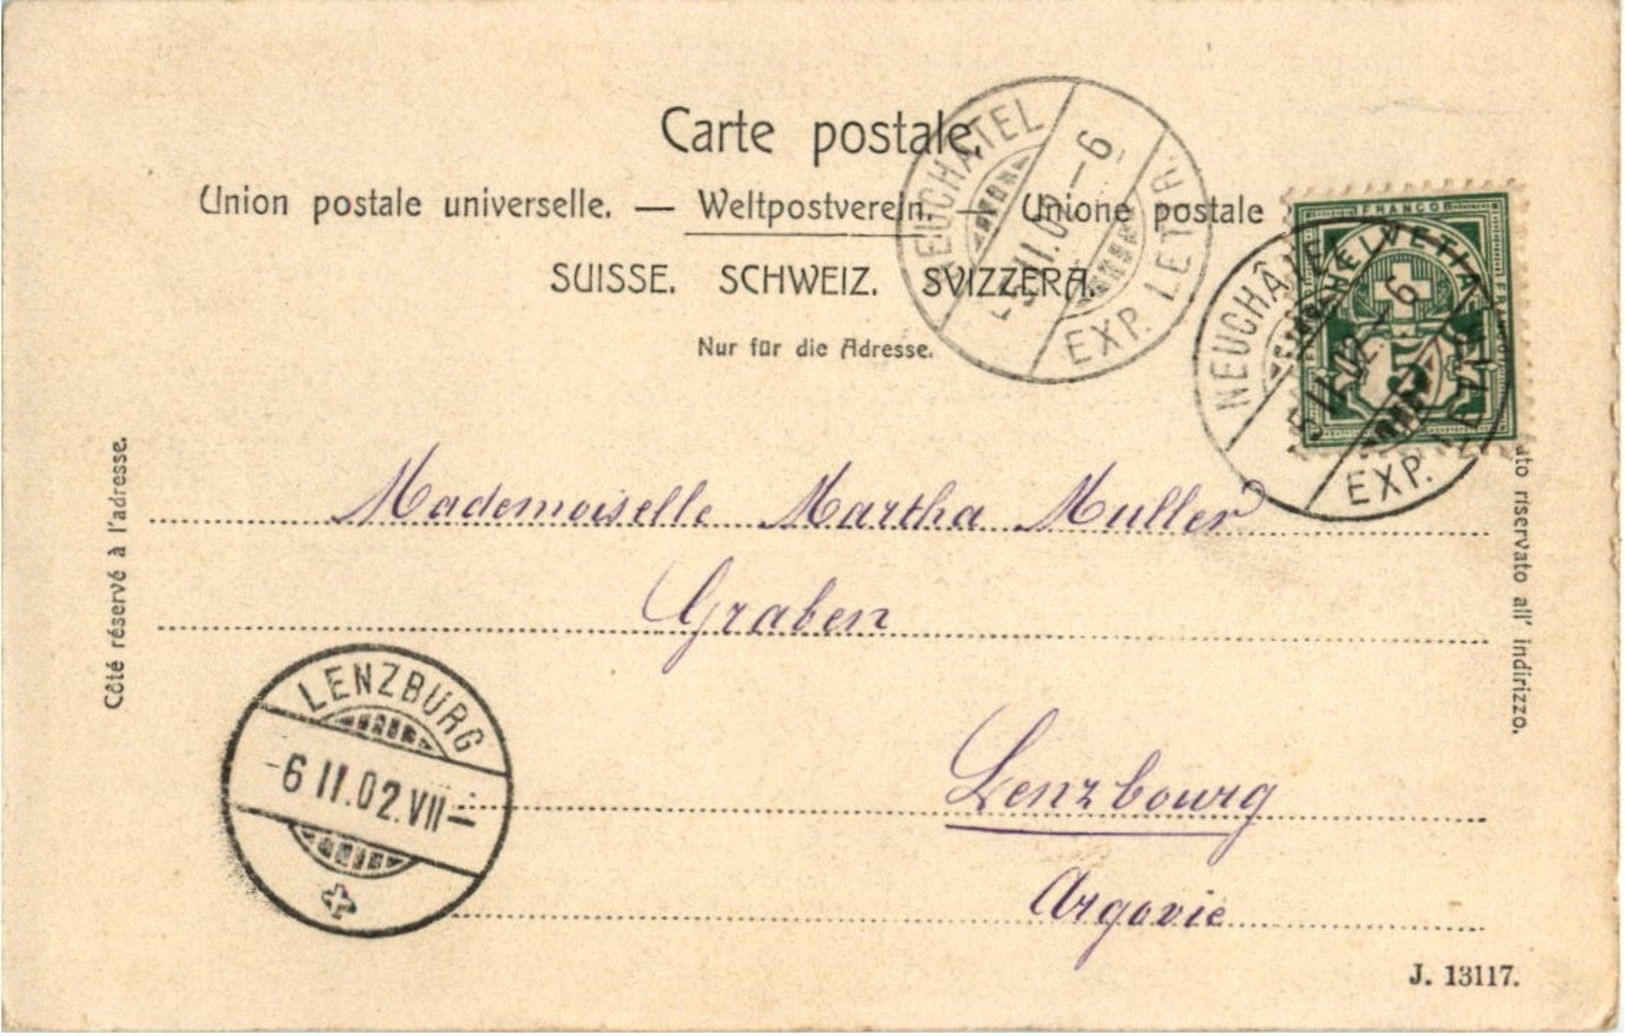 Carte postale.
Union postale universelle. — Weltpostverein. — Unione postale
SUISSE. SCHWEIZ. SVIZZERA.
Nur für die Adresse.
NEUCHATEL
II.02 – 6
EXP. LETTR.
FRANCO
HELVETIA
5
NEUCHÂTEL
5 II.02 – 6
EXP. LETTR.
Côté réservé à l'adresse.
riservato all' indirizzo.
Mademoiselle Martha Muller
Graben
Lenzbourg
Argovie
LENZBURG
-6 II.02.VII—
J. 13117.